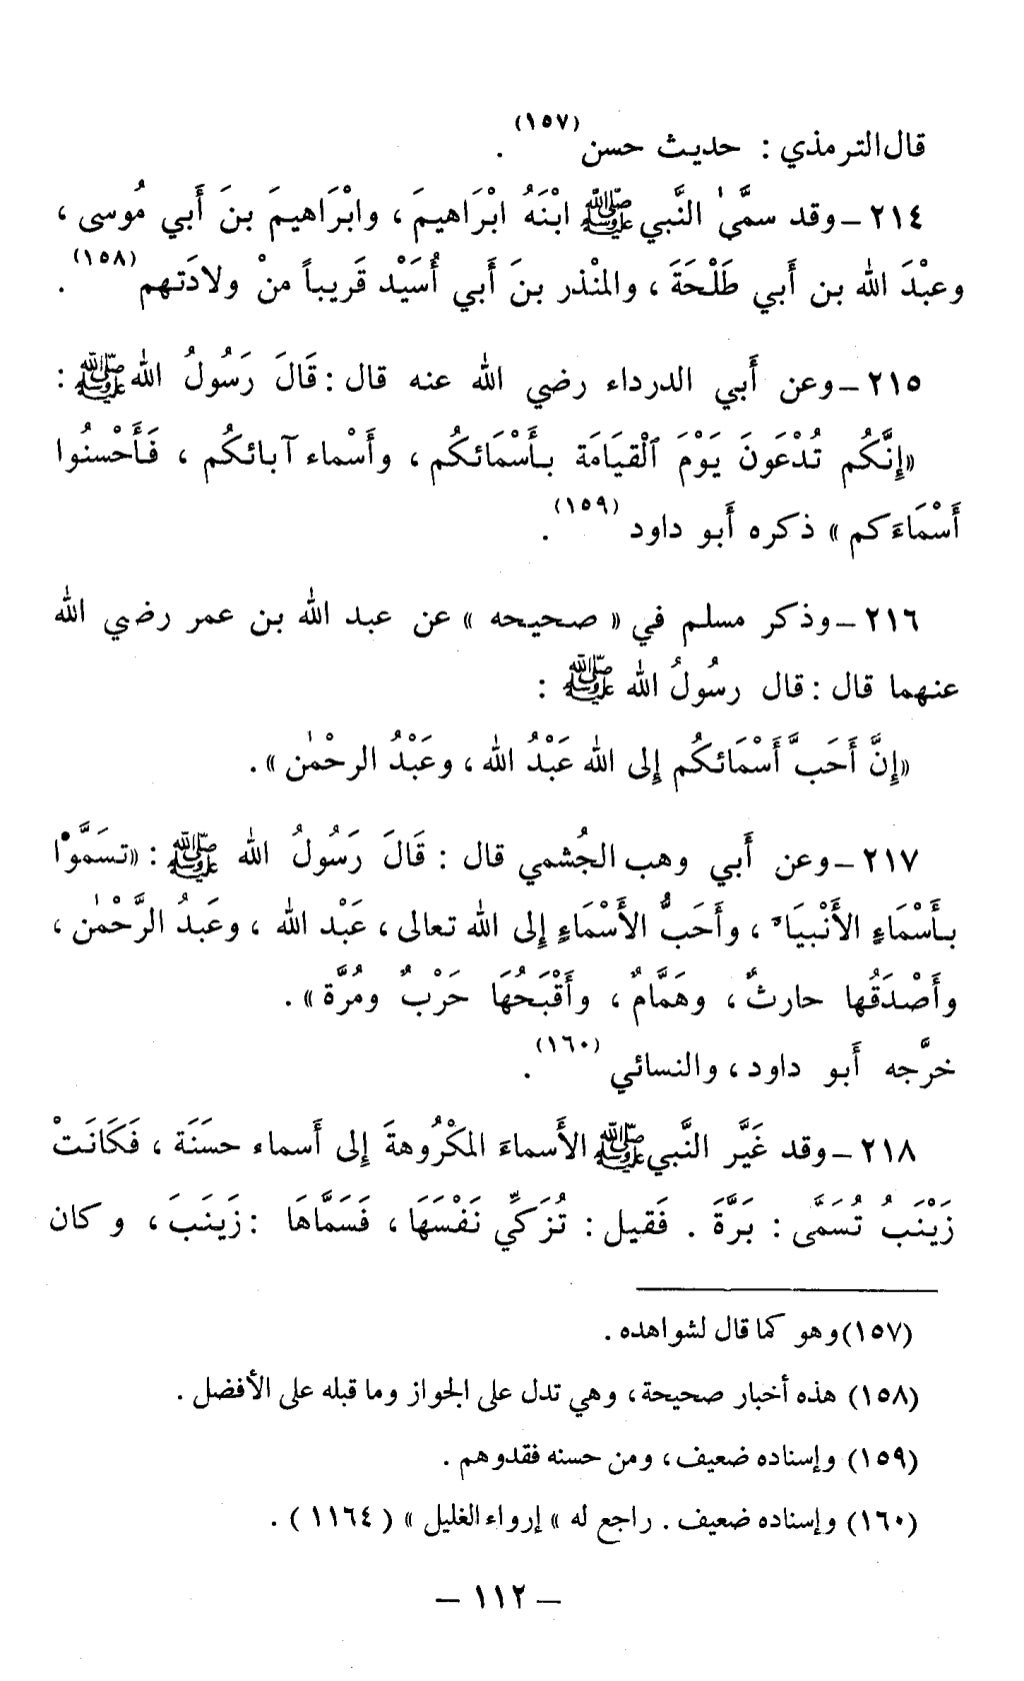 قال الترمذي : حديث حسن (١٥٧) .
٢١٤ - وقد سمَّىٰ النَّبي ﷺ ابْنَهُ ابْرَاهيمَ ، وابْرَاهيمَ بنَ أَبي مُوسى ،
وعبْدَ الله بن أَبي طَلْحَةَ ، والمنْذر بنَ أَبي أُسَيْد قَريباً منْ ولادَتهم (١٥٨) .
٢١٥ - وعن أَبي الدرداء رضي الله عنه قال : قَالَ رَسُولُ الله ﷺ :
«إِنَّكُم تُدْعَونَ يَوْمَ ٱلْقيَامَة بـأَسْمَائكُم ، وأَسْماء آبـائكُم ، فَـأَحْسنُوا
أَسْمَاءَكم » ذكره أَبو داود (١٥٩) .
٢١٦ - وذكر مسلم في « صحيحه » عن عبد الله بن عمر رضي الله
عنهما قال : قال رسُولُ الله ﷺ :
«إِنَّ أَحَبَّ أَسْمَائكُم إِلى الله عَبْدُ الله ، وعَبْدُ الرحْمٰن » .
٢١٧ - وعن أَبي وهب الجُشمي قال : قَالَ رَسُولُ الله ﷺ : «تسَمَّوْا
بـأَسْمَاءِ الأَنْبيَاء ، وأَحَبُّ الأَسْمَاءِ إِلى الله تعالى ، عَبْد الله ، وعَبدُ الرَّحْمٰن ،
وأَصْدَقُها حارثٌ ، وهَمَّامٌ ، وأَقْبَحُهَا حَرْبٌ ومُرَّة » .
خرَّجه أَبو داود ، والنسائي (١٦٠) .
٢١٨ - وقد غَيَّر النَّبي ﷺ الأَسماءَ المكْرُوهةَ إِلى أَسماء حسَنَة ، فَكَانَتْ
زَيْنَبُ تُسَمَّى : بَرَّةَ . فَقيل : تُزَكِّي نَفْسَهَا ، فَسَمَّاهَا : زَينَبَ ، وكان
(١٥٧) وهو كما قال لشواهده .
(١٥٨) هذه أخبار صحيحة ، وهي تدل على الجواز وما قبله على الأفضل .
(١٥٩) وإسناده ضعيف ، ومن حسنه فقدوهم .
(١٦٠) وإسناده ضعيف . راجع له » إرواء الغليل » ( ١١٦٤ ) .
- ١١٢ -